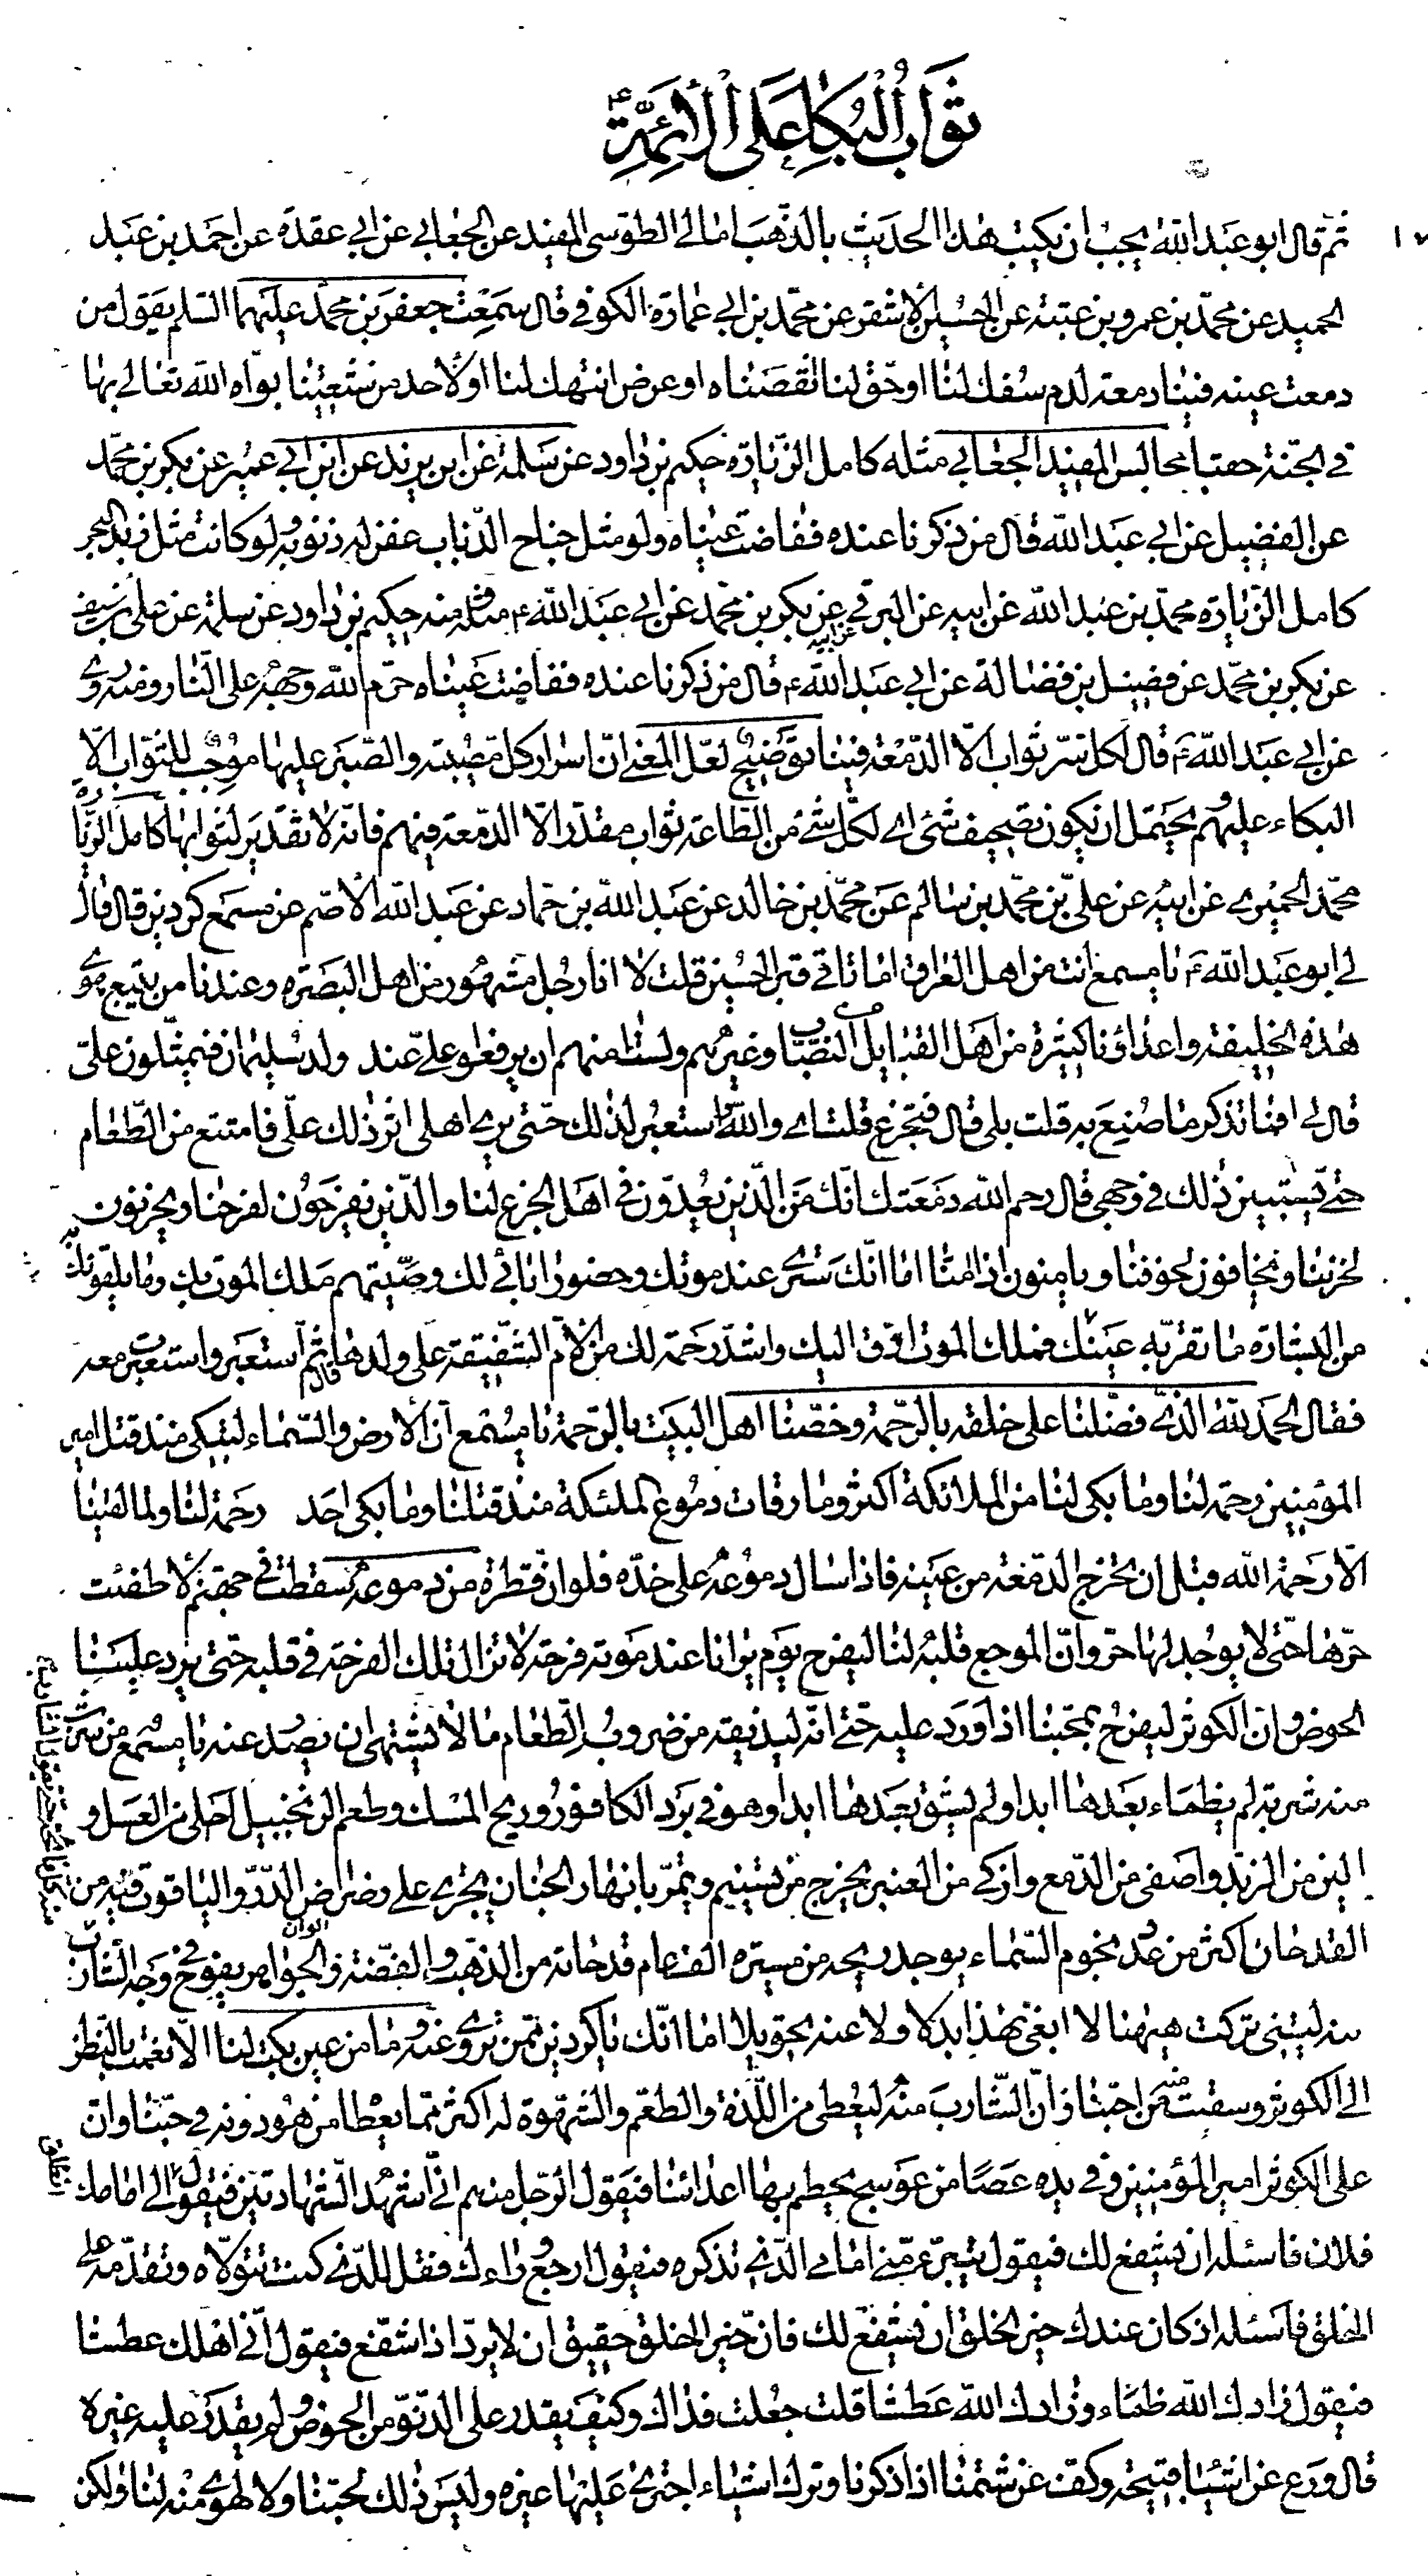 ثَوَابُ الْبُكَاءِ عَلَى الْأَئِمَّةِ ع
ثم قال ابو عبد الله يجب ان يكتب هذا الحديث بالذهب امالى الطوسى المفيد عن الجعابي عن ابي عقدة عن احمد بن عبد
الحميد عن محمد بن عمرو بن عتبة عن الحسين الاشقر عن محمد بن ابي عمارة الكوفي قال سمعت جعفر بن محمد عليهما السلم يقول من
دمعت عينه فينا دمعة لدم سفك لنا او حق لنا نقصناه او عرض انتهك لنا او لاحد من شيعتنا بوأه الله تعالى بها
في الجنة حقبا مجالس المفيد الجعابي مثله كامل الزيارة حكيم بن داود عن سلمة عن ابن يزيد عن ابن ابي عمير عن بكر بن محمد
عن الفضيل عن ابي عبد الله قال من ذكرنا عنده ففاضت عيناه ولو مثل جناح الذباب غفر له ذنوبه ولو كانت مثل زبد البحر
كامل الزيارة محمد بن عبد الله عن ابيه عن البرقي عن ابيه عن بكر بن محمد عن ابي عبد الله ع مثله ومنه حكيم بن داود عن سلمة عن علي بن سيف
عن بكر بن محمد عن فضيل بن فضالة عن ابي عبد الله ع قال من ذكرنا عنده ففاضت عيناه حرم الله وجهه على النار ومنه روى
عن ابي عبد الله ع قال لكل سر ثواب الا الدمعة فينا توضيح لعل المعنى ان اسرار كل مصيبة والصبر عليها موجب للثواب الا
البكاء عليهم ويحتمل ان يكون تصحيف شئ اي لكل شئ من الطاعة ثواب مقدر الا الدمعة فيهم فانه لا تقدير لثوابها كامل الزيارة
محمد الحميري عن ابيه عن علي بن محمد بن سالم عن محمد بن خالد عن عبد الله بن حماد عن عبد الله الاصم عن مسمع كردين قال قال
لي ابو عبد الله ع يا مسمع انت من اهل العراق اما تاتي قبر الحسين قلت لا انا رجل مشهور من اهل البصرة وعندنا من يتبع هوى
هذه الخليفة واعداؤنا كثيرة من اهل القبايل من النصاب وغيرهم ولست امنهم ان يرفعوا على عند ولد سليمان فيمثلون علي
قال لي افما تذكر ما صنع به قلت بلى قال فتجزع قلت اي والله واستعبر لذلك حتى يرى اهلى اثر ذلك على فامتنع من الطعام
حتى يستبين ذلك في وجهي قال رحم الله دمعتك اما انك من الذين يعدون في اهل الجزع لنا والذين يفرحون لفرحنا ويحزنون
لحزننا ويخافون لخوفنا ويامنون اذا امنا اما انك سترى عند موتك وحضور ابائي لك ووصيتهم ملك الموت بك وما يلقونك به
من البشارة ما تقر به عينك فملك الموت ارق اليك واشد رحمة لك من الام الشفيقة على ولدها قال ثم استعبر واستعبرت معه
فقال الحمد لله الذي فضلنا على خلقه بالرحمة وخصنا اهل البيت بالرحمة يا مسمع ان الارض والسماء لتبكي منذ قتل امير
المؤمنين رحمة لنا وما بكى لنا من الملائكة اكثر وما رقات دموع الملئكة منذ قتلنا وما بكى احد رحمة لنا ولما لقينا
الا رحمة الله قبل ان تخرج الدمعة من عينه فاذا سال دموعه على خده فلو ان قطرة من دموعه سقطت في جهنم لاطفئت
حرها حتى لا يوجد لها حر وان الموجع قلبه لنا ليفرح يوم يرانا عند موته فرحة لا تزال تلك الفرحة في قلبه حتى يرد علينا
الحوض وان الكوثر ليفرح بمحبنا اذا ورد عليه حتى انه ليذيقه من ضروب الطعام ما لا يشتهي ان يصدر عنه يا مسمع من شرب
منه شربة لم يظماء بعدها ابدا ولم يشق بعدها ابدا وهو في برد الكافور وريح المسك وطعم الزنجبيل احلى من العسل و
الين من الزبد واصفى من الدمع وازكى من العنبر يخرج من تسنيم ويمر بانهار الجنان يجري على رضراض الدر والياقوت فيه من
القدحان اكثر من عدد نجوم السماء يوجد ريحه من مسيرة الف عام قدحانه من الذهب والفضة والوان الجواهر يفوح في وجه الشارب
منه ليتني تركت ههنا لا ابغي بهذا بدلا ولا عنه تحويلا اما انك يا كردين ممن تروى منه وما من عين بكت لنا الا نعمت بالنظر
الى الكوثر وسقيت منه من احبنا وان الشارب منه ليعطى من اللذة والطعم والشهوة له اكثر مما يعطا من هو دونه في حبنا وان
على الكوثر امير المؤمنين وفي يده عصا من عوسج يحطم بها اعدائنا فيقول الرجل منهم اني اشهد الشهادتين فيقول انطلق الى امامك
فلان فاسئله ان يشفع لك فيقول يتبرء مني امامي الذي تذكره فيقول ارجع وراءك فقل للذي كنت تتولاه وتقدمه على
الخلق فاسئله اذ كان عندك خير الخلق ان يشفع لك فان خير الخلق حقيق ان لا يرد اذا شفع فيقول اني اهلك عطشا
فيقول زادك الله ظماء وزادك الله عطشا قلت جعلت فداك وكيف يقدر على الدنو من الحوض ولم يقدر عليه غيره
قال ورع عن اشياء قبيحة وكف عن شتمنا اذا ذكرنا وترك اشياء اجترئ عليها غيره وليس ذلك لحبنا ولا لهوى منه لنا ولكن